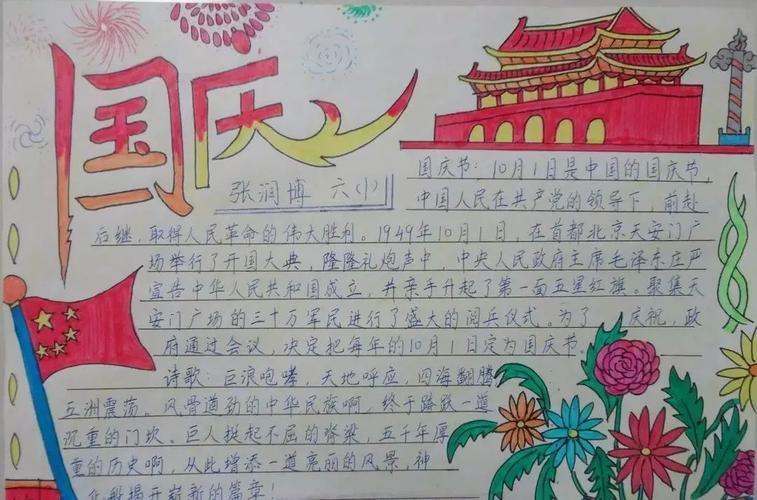 国庆
张润博 六(1)
国庆节：10月1日是中国的国庆节，
中国人民在共产党的领导下，前赴
后继，取得人民革命的伟大胜利。1949年10月1日，在首都北京天安门广
场举行了开国大典，隆隆礼炮声中，中央人民政府主席毛泽东庄严
宣告中华人民共和国成立，并亲手升起了第一面五星红旗。聚集天
安门广场的三十万军民进行了盛大的阅兵仪式。为了 庆祝，政
府通过会议，决定把每年的10月1日定为国庆节。
诗歌：巨浪咆哮，天地呼应，四海翻腾
五洲震荡。风骨遒劲的中华民族啊，终于踏跃一道
沉重的门坎。巨人挺起不屈的脊梁，五千年厚
重的历史啊，从此增添一道亮丽的风景，神
化般揭开崭新的篇章！